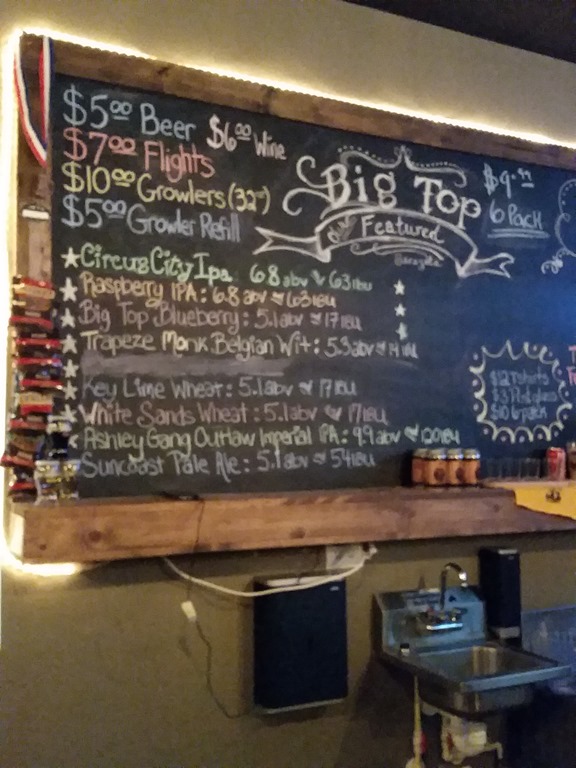 $5⁰⁰ Beer $6⁰⁰ Wine
$7⁰⁰ Flights
$10⁰⁰ Growlers (32oz)
$5⁰⁰ Growler Refill
Big Top
Featured
$9.99
6 Pack
Circus City Ipa 6.8 abv 63 ibu
Raspberry IPA: 6.8 abv 63 IBU
Big Top Blueberry: 5.1 abv 17 IBU
Trapeze Monk Belgian Wit: 5.3 abv 14 IBU
Key Lime Wheat: 5.1 abv 17 IBU
White Sands Wheat: 5.1 abv 17 IBU
Ashley Gang Outlaw Imperial IPA: 9.9 abv 120 IBU
Suncoast Pale Ale: 5.1 abv 54 IBU
$12 Tshirts
$3 Pint glass
$10 6 pack